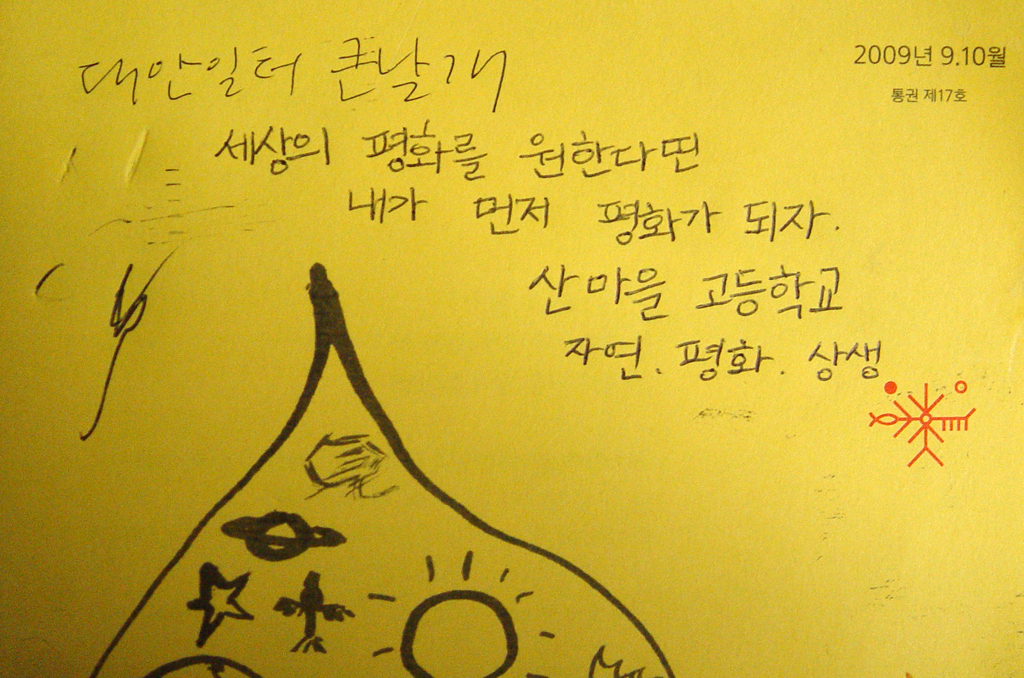 대안일터 큰날개
2009년 9.10월
통권 제17호
세상의 평화를 원한다면
내가 먼저 평화가 되자.
산마을 고등학교
자연. 평화. 상생